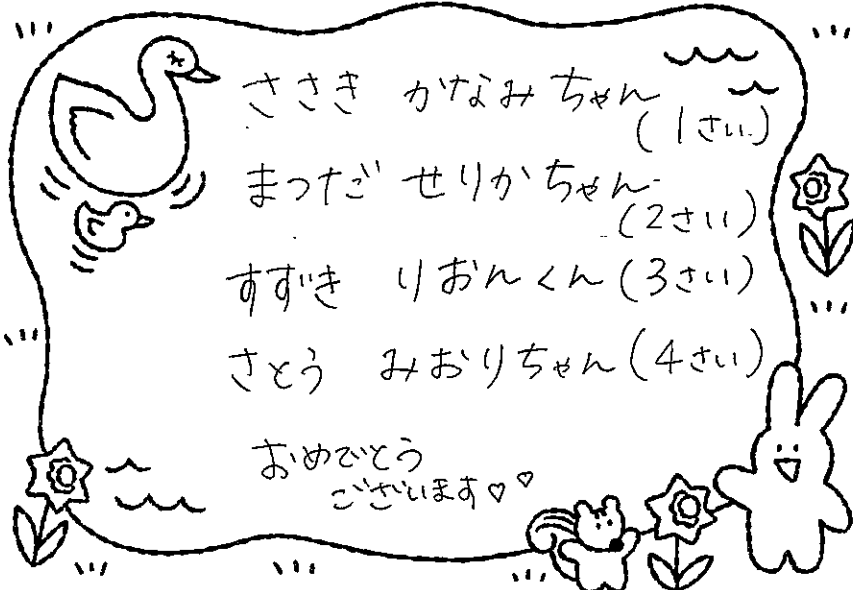 ささき かなみちゃん
(1さい)
まつだ せりかちゃん
(2さい)
すずき りおんくん(3さい)
さとう みおりちゃん(4さい)
おめでとう
ございます♡♡